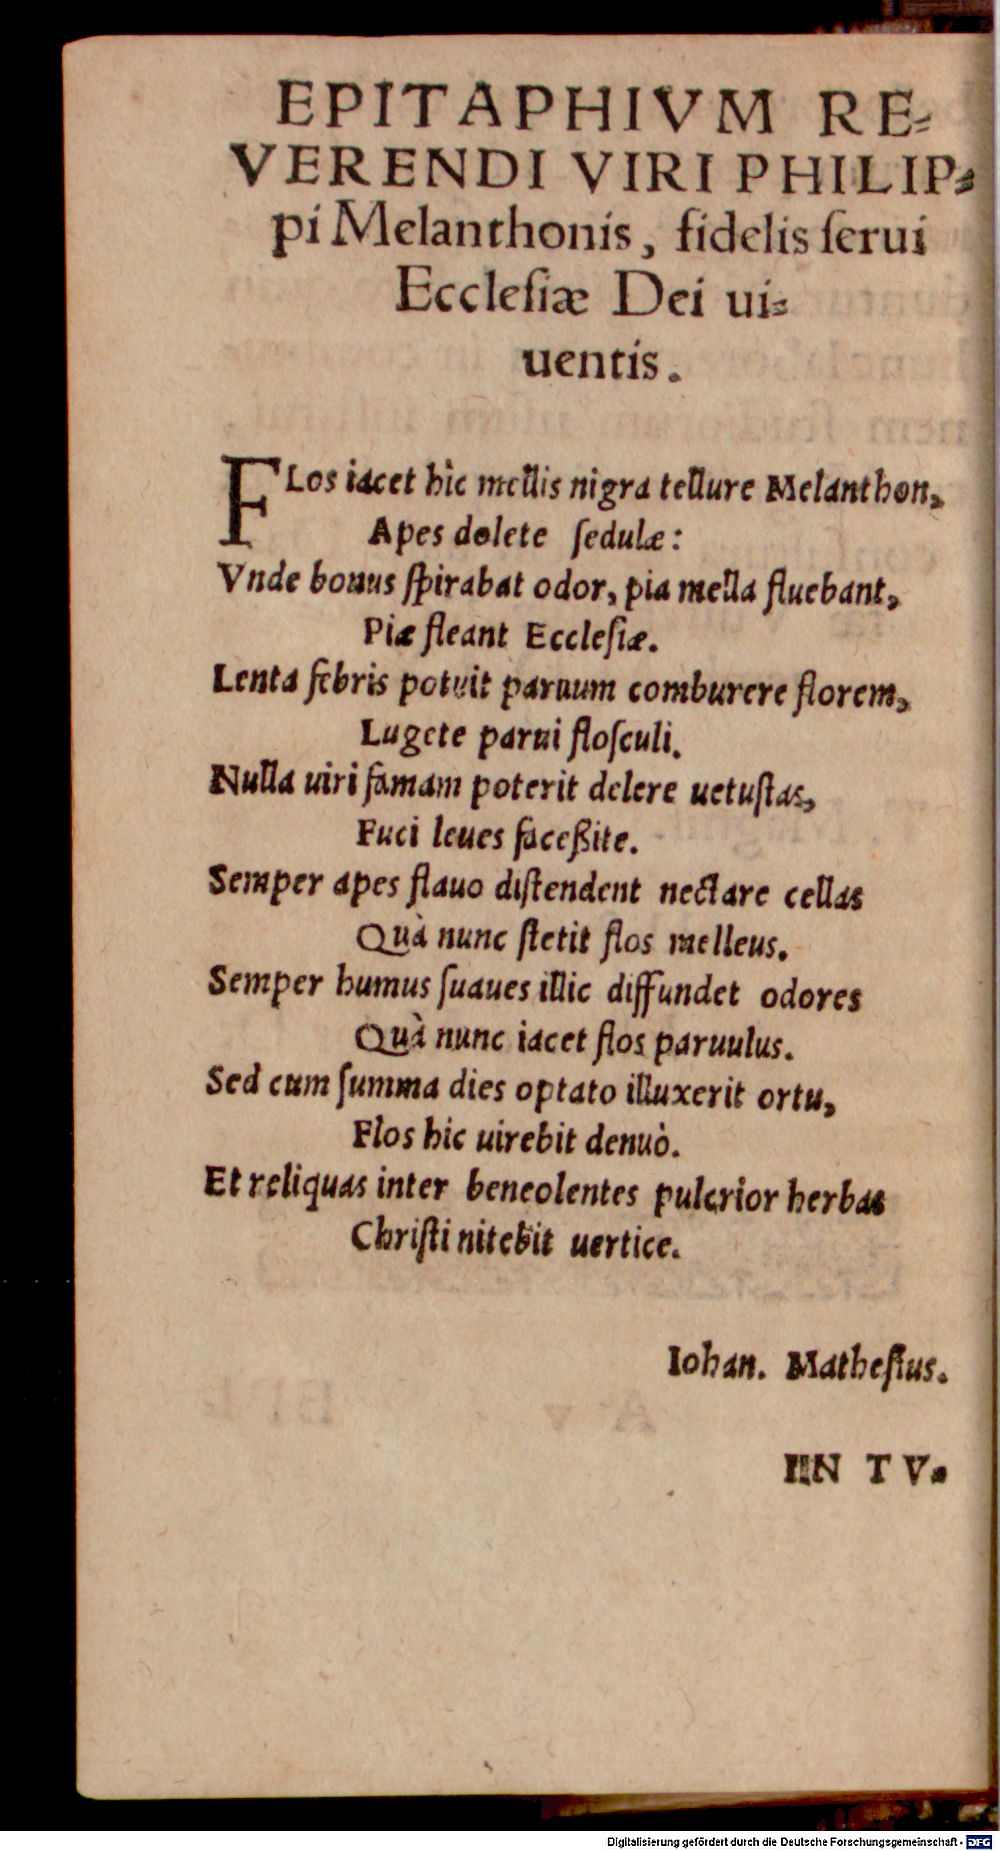 EPITAPHIVM RE-
VERENDI VIRI PHILIP-
pi Melanthonis, fidelis ſerui
Eccleſiæ Dei ui-
uentis.
FLos iacet hîc mellis nigra tellure Melanthon,
Apes dolete ſedulæ:
Vnde bonus ſpirabat odor, pia mella fluebant,
Piæ fleant Eccleſiæ.
Lenta febris potuit paruum comburere florem,
Lugete parui floſculi.
Nulla uiri famam poterit delere uetuſtas,
Fuci leues faceßite.
Semper apes flauo diſtendent nectare cellas
Quà nunc ſtetit flos melleus.
Semper humus ſuaues illic diffundet odores
Quà nunc iacet flos paruulus.
Sed cum ſumma dies optato illuxerit ortu,
Flos hic uirebit denuò.
Et reliquas inter beneolentes pulcrior herbas
Chriſti nitebit uertice.
Iohan. Matheſius.
IN TV-
Digitalisierung gefördert durch die Deutsche Forschungsgemeinschaft - DFG